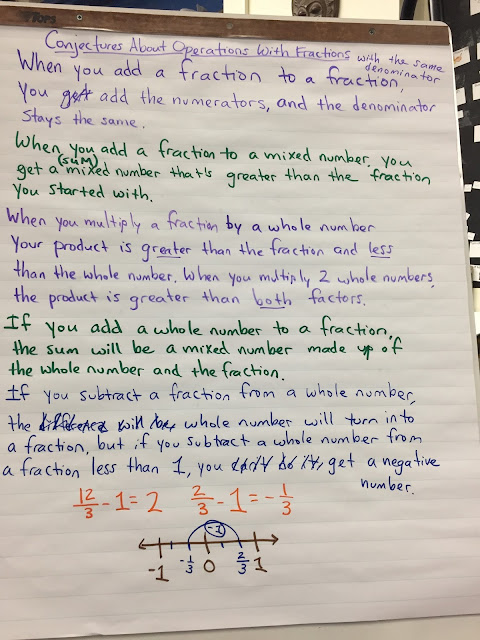 TOPS
Conjectures About Operations With Fractions with the same
denominator
When you add a fraction to a fraction,
You add the numerators, and the denominator
stays the same.
When you add a fraction to a mixed number, you
(sum)
get a mixed number that's greater than the fraction
you started with.
When you multiply a fraction by a whole number
Your product is greater than the fraction and less
than the whole number. When you multiply 2 whole numbers,
the product is greater than both factors.
If you add a whole number to a fraction,
the sum will be a mixed number made up of
the whole number and the fraction.
If you subtract a fraction from a whole number,
the difference will be whole number will turn into
a fraction, but if you subtract a whole number from
a fraction less than 1, you can't do it, get a negative
number.
12/3 - 1 = 2 2/3 - 1 = -1/3
-1
-1 -1/3 0 2/3 1